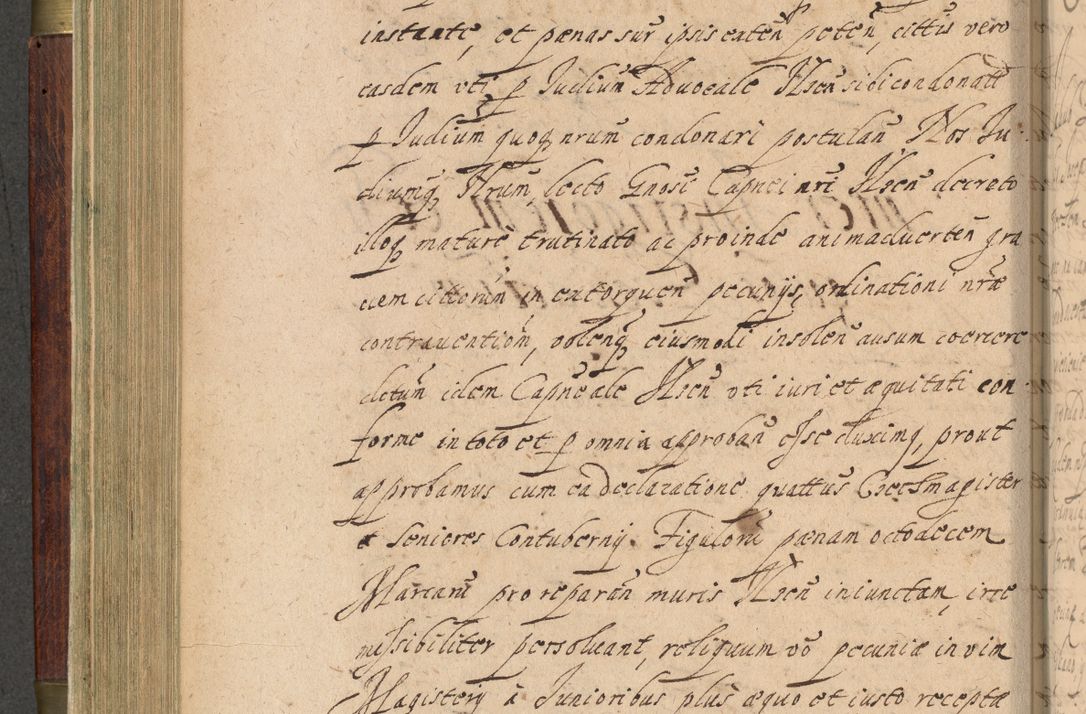 instante, et pænas sur ipsis eateñ peteñ, cittis vero
easdem vti p Judiũm Advocale Ilseñ sibi condonatt
p Judiũm quoq nrum condonari postulañ, Nos Ju
diumq Nrum, lecto Gnose Capnei nri Ilseñ decreto
illoq mature trutinato ac proinde animaduerteñ gra
uem cittorũm in extorqueñ pecunijs, ordinationi nræ
contrauentioñ, volenq eiusmodi insoleñ ausum coercere
dctũm idem Capneale Ilseñ vti iuri et æquitati con
forme in toto et p omnia approbañ esse duximq, prout
approbamus cum ea declaratione quattus Czechmagister
et Seniores Contubernij Figulorũ pænam octodecem
Marcarũ pro reparañ muris Ilseñ iniunctam, irre
missibiliter persoluant, reliquum vo pecuniæ in vim
Magisterij à Junioribus plus æquo et iusto receptæ